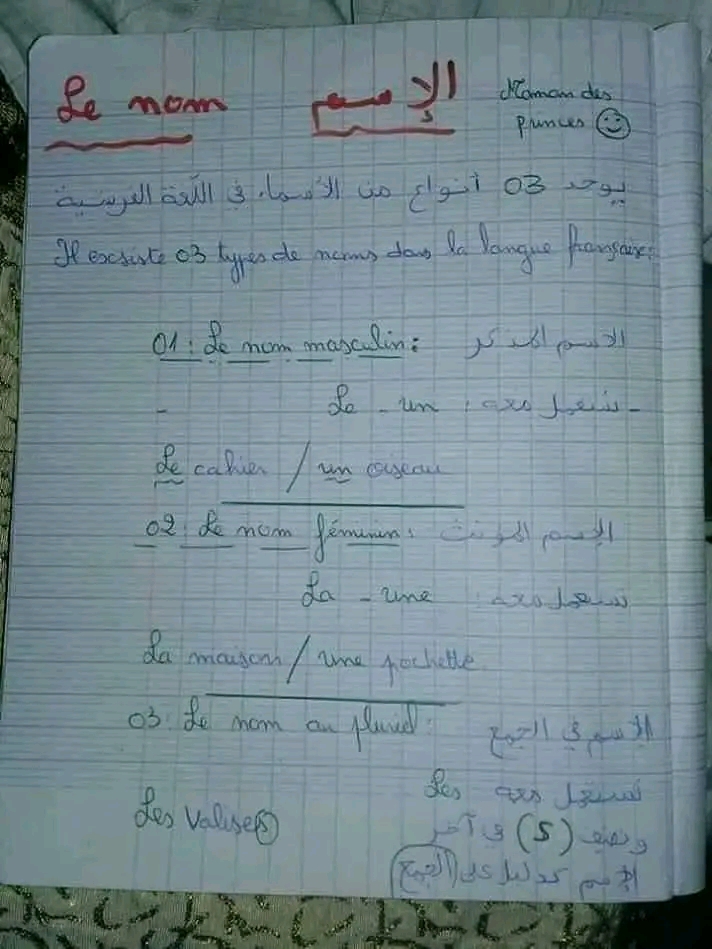 Le nom الإسم Maman des princes
يوجد 03 أنواع من الأسماء في اللّغة الفرنسية
Il exsiste 03 types de noms dans la langue française:
01: Le nom masculin: الاسم المذكر
- Le - un : نستعمل معه -
Le cahier / un oiseau
02: Le nom féminin: الإسم المؤنث
La - une : نستعمل معه
La maison / une pochette
03: Le nom au pluriel: الإسم في الجمع
نستعمل معه Les
Les valises
ونضيف (s) في آخر
الإسم كدليل على الجمع